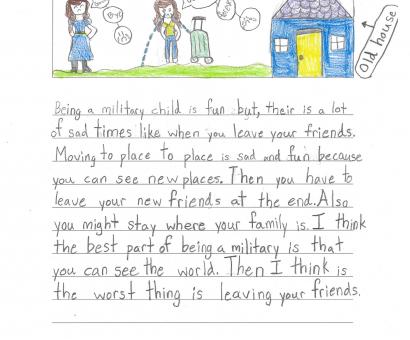 Bye
Old house
Being a military child is fun but, their is a lot
of sad times like when you leave your friends.
Moving to place to place is sad and fun because
you can see new places. Then you have to
leave your new friends at the end. Also
you might stay where your family is. I think
the best part of being a military is that
you can see the world. Then I think is
the worst thing is leaving your friends.